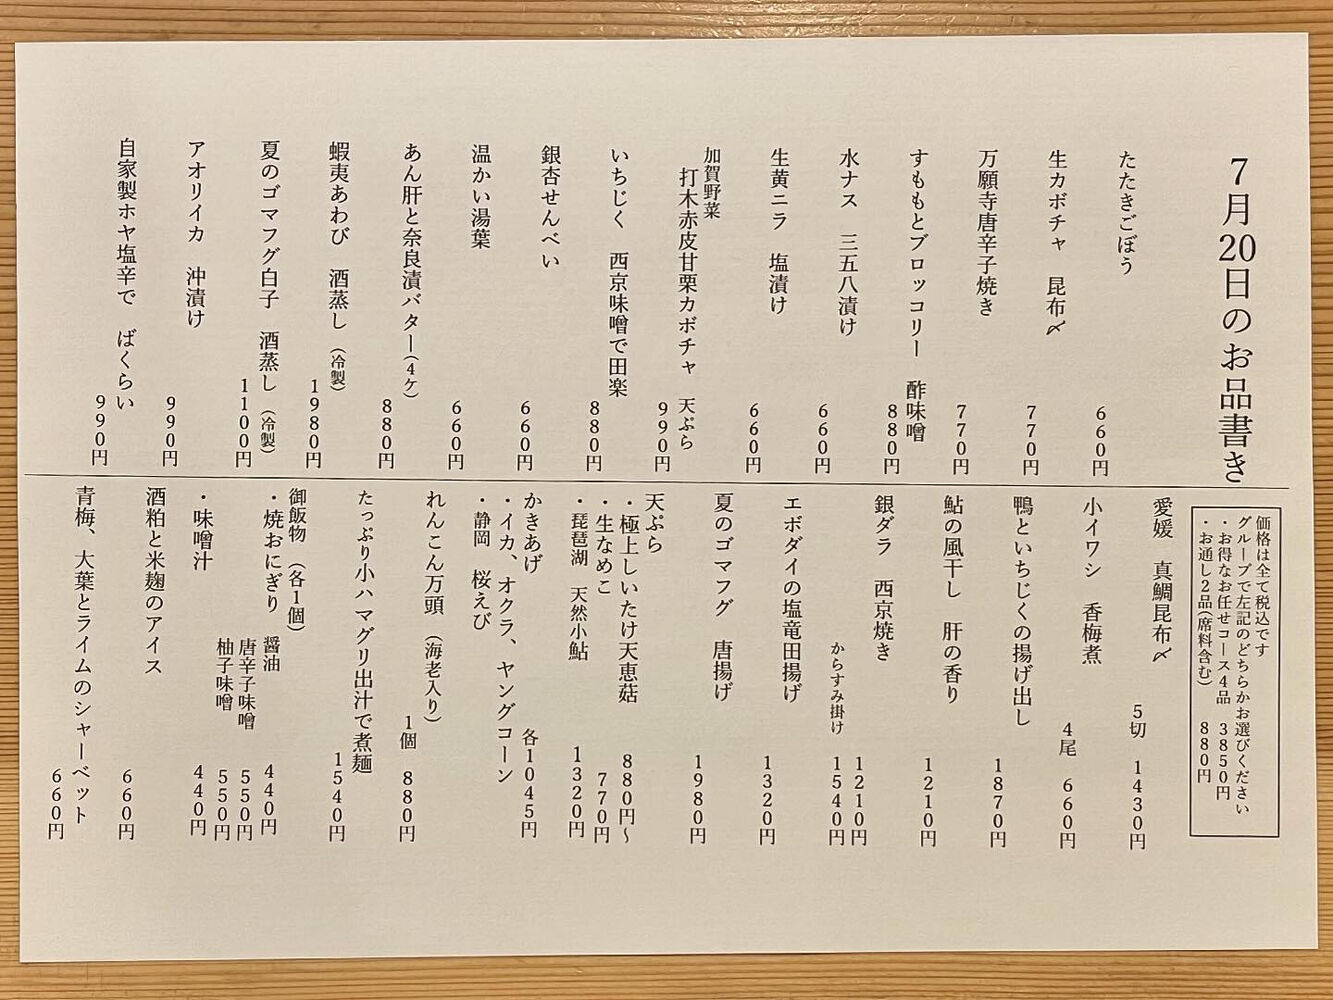 7月20日のお品書き
たたきごぼう
660円
生カボチャ 昆布〆
770円
万願寺唐辛子焼き
770円
すももとブロッコリー 酢味噌
880円
水ナス 三五八漬け
660円
生黄ニラ 塩漬け
660円
加賀野菜
打木赤皮甘栗カボチャ 天ぷら
990円
いちじく 西京味噌で田楽
880円
銀杏せんべい
660円
温かい湯葉
660円
あん肝と奈良漬バター(4ケ)
880円
蝦夷あわび 酒蒸し(冷製)
1980円
夏のゴマフグ白子 酒蒸し(冷製)
1100円
アオリイカ 沖漬け
990円
自家製ホヤ塩辛で ばくらい
990円
価格は全て税込です
グループで左記のどちらかお選びください
・お得なお任せコース4品 3850円
・お通し2品(席料含む) 880円
愛媛 真鯛昆布〆
5切 1430円
小イワシ 香梅煮
4尾 660円
鴨といちじくの揚げ出し
1870円
鮎の風干し 肝の香り
1210円
銀ダラ 西京焼き
1210円
からすみ掛け 1540円
エボダイの塩竜田揚げ
1320円
夏のゴマフグ 唐揚げ
1980円
天ぷら
・極上しいたけ天恵菇 880円〜
・生なめこ 770円
・琵琶湖 天然小鮎 1320円
かきあげ 各1045円
・イカ、オクラ、ヤングコーン
・静岡 桜えび
れんこん万頭 (海老入り)
1個 880円
たっぷり小ハマグリ出汁で煮麺
1540円
御飯物 (各1個)
・焼おにぎり 醤油 440円
唐辛子味噌 550円
柚子味噌 550円
・味噌汁 440円
酒粕と米麹のアイス
660円
青梅、大葉とライムのシャーベット
660円